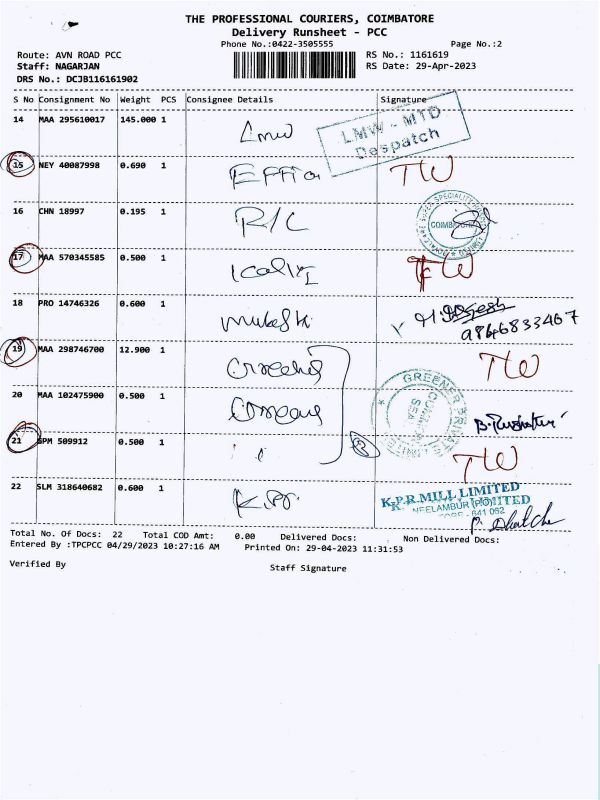 THE PROFESSIONAL COURIERS, COIMBATORE
Delivery Runsheet - PCC
Phone No.:0422-3505555
Page No.:2
Route: AVN ROAD PCC
RS No.: 1161619
Staff: NAGARJAN
RS Date: 29-Apr-2023
DRS No.: DCJB116161902
S No Consignment No Weight PCS Consignee Details Signature
14 MAA 295610017 145.000 1 LMW
LMW - MTD
Despatch
15 NEY 40087998 0.690 1 TW
16 CHN 18997 0.195 1 R/C
17 MAA 570345585 0.500 1 TW
18 PRO 14746326 0.600 1 Mukesh
9846833467
19 MAA 298746700 12.900 1 TW
20 MAA 102475900 0.500 1
GREENER PRIVATE
21 SPM 509912 0.500 1 " TW
22 SLM 318640682 0.600 1 K.P.r.
K.P.R.MILL LIMITED
NEELAMBUR (PO)
641 062
Total No. Of Docs: 22 Total COD Amt: 0.00 Delivered Docs: Non Delivered Docs:
Entered By :TPCPCC 04/29/2023 10:27:16 AM Printed On: 29-04-2023 11:31:53
Verified By
Staff Signature